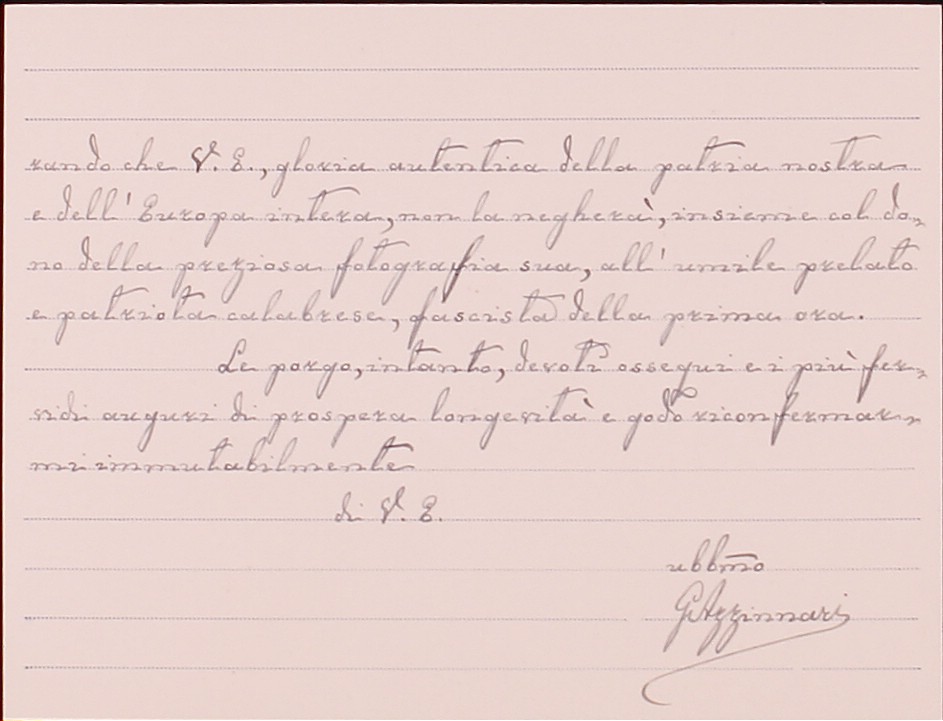 rando che V. E., gloria autentica della patria nostra
e dell'Europa intera, non la negherà, insieme col do-
no della preziosa fotografia sua, all'umile prelato
e patriota calabrese, fascista della prima ora.
Le porgo, intanto, devoti ossequi e i più fer-
vidi auguri di prospera longevità e godo riconfermar-
mi immutabilmente
di V. E.
ubbmo
G. Azzinnari